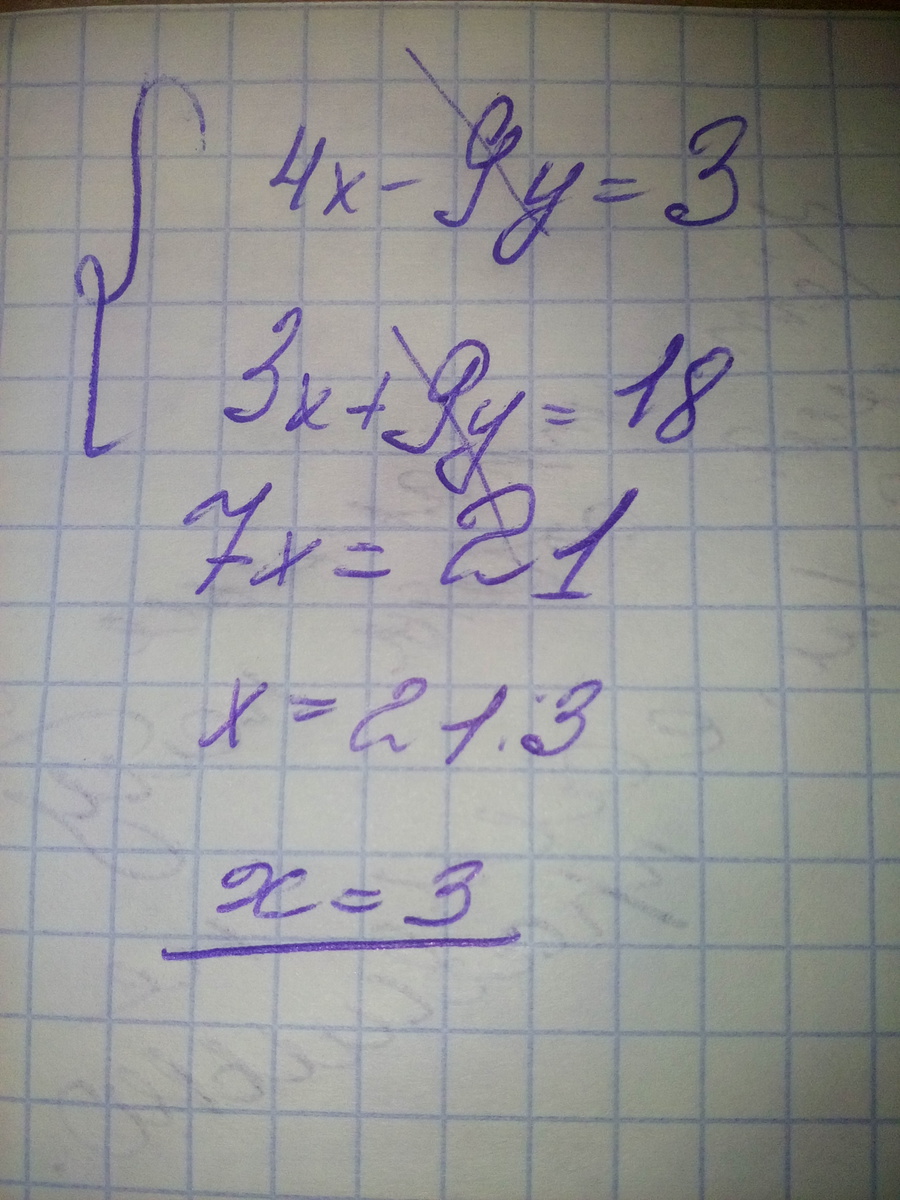 4x - 9y = 3
3x + 9y = 18
7x = 21
x = 21:3
x = 3